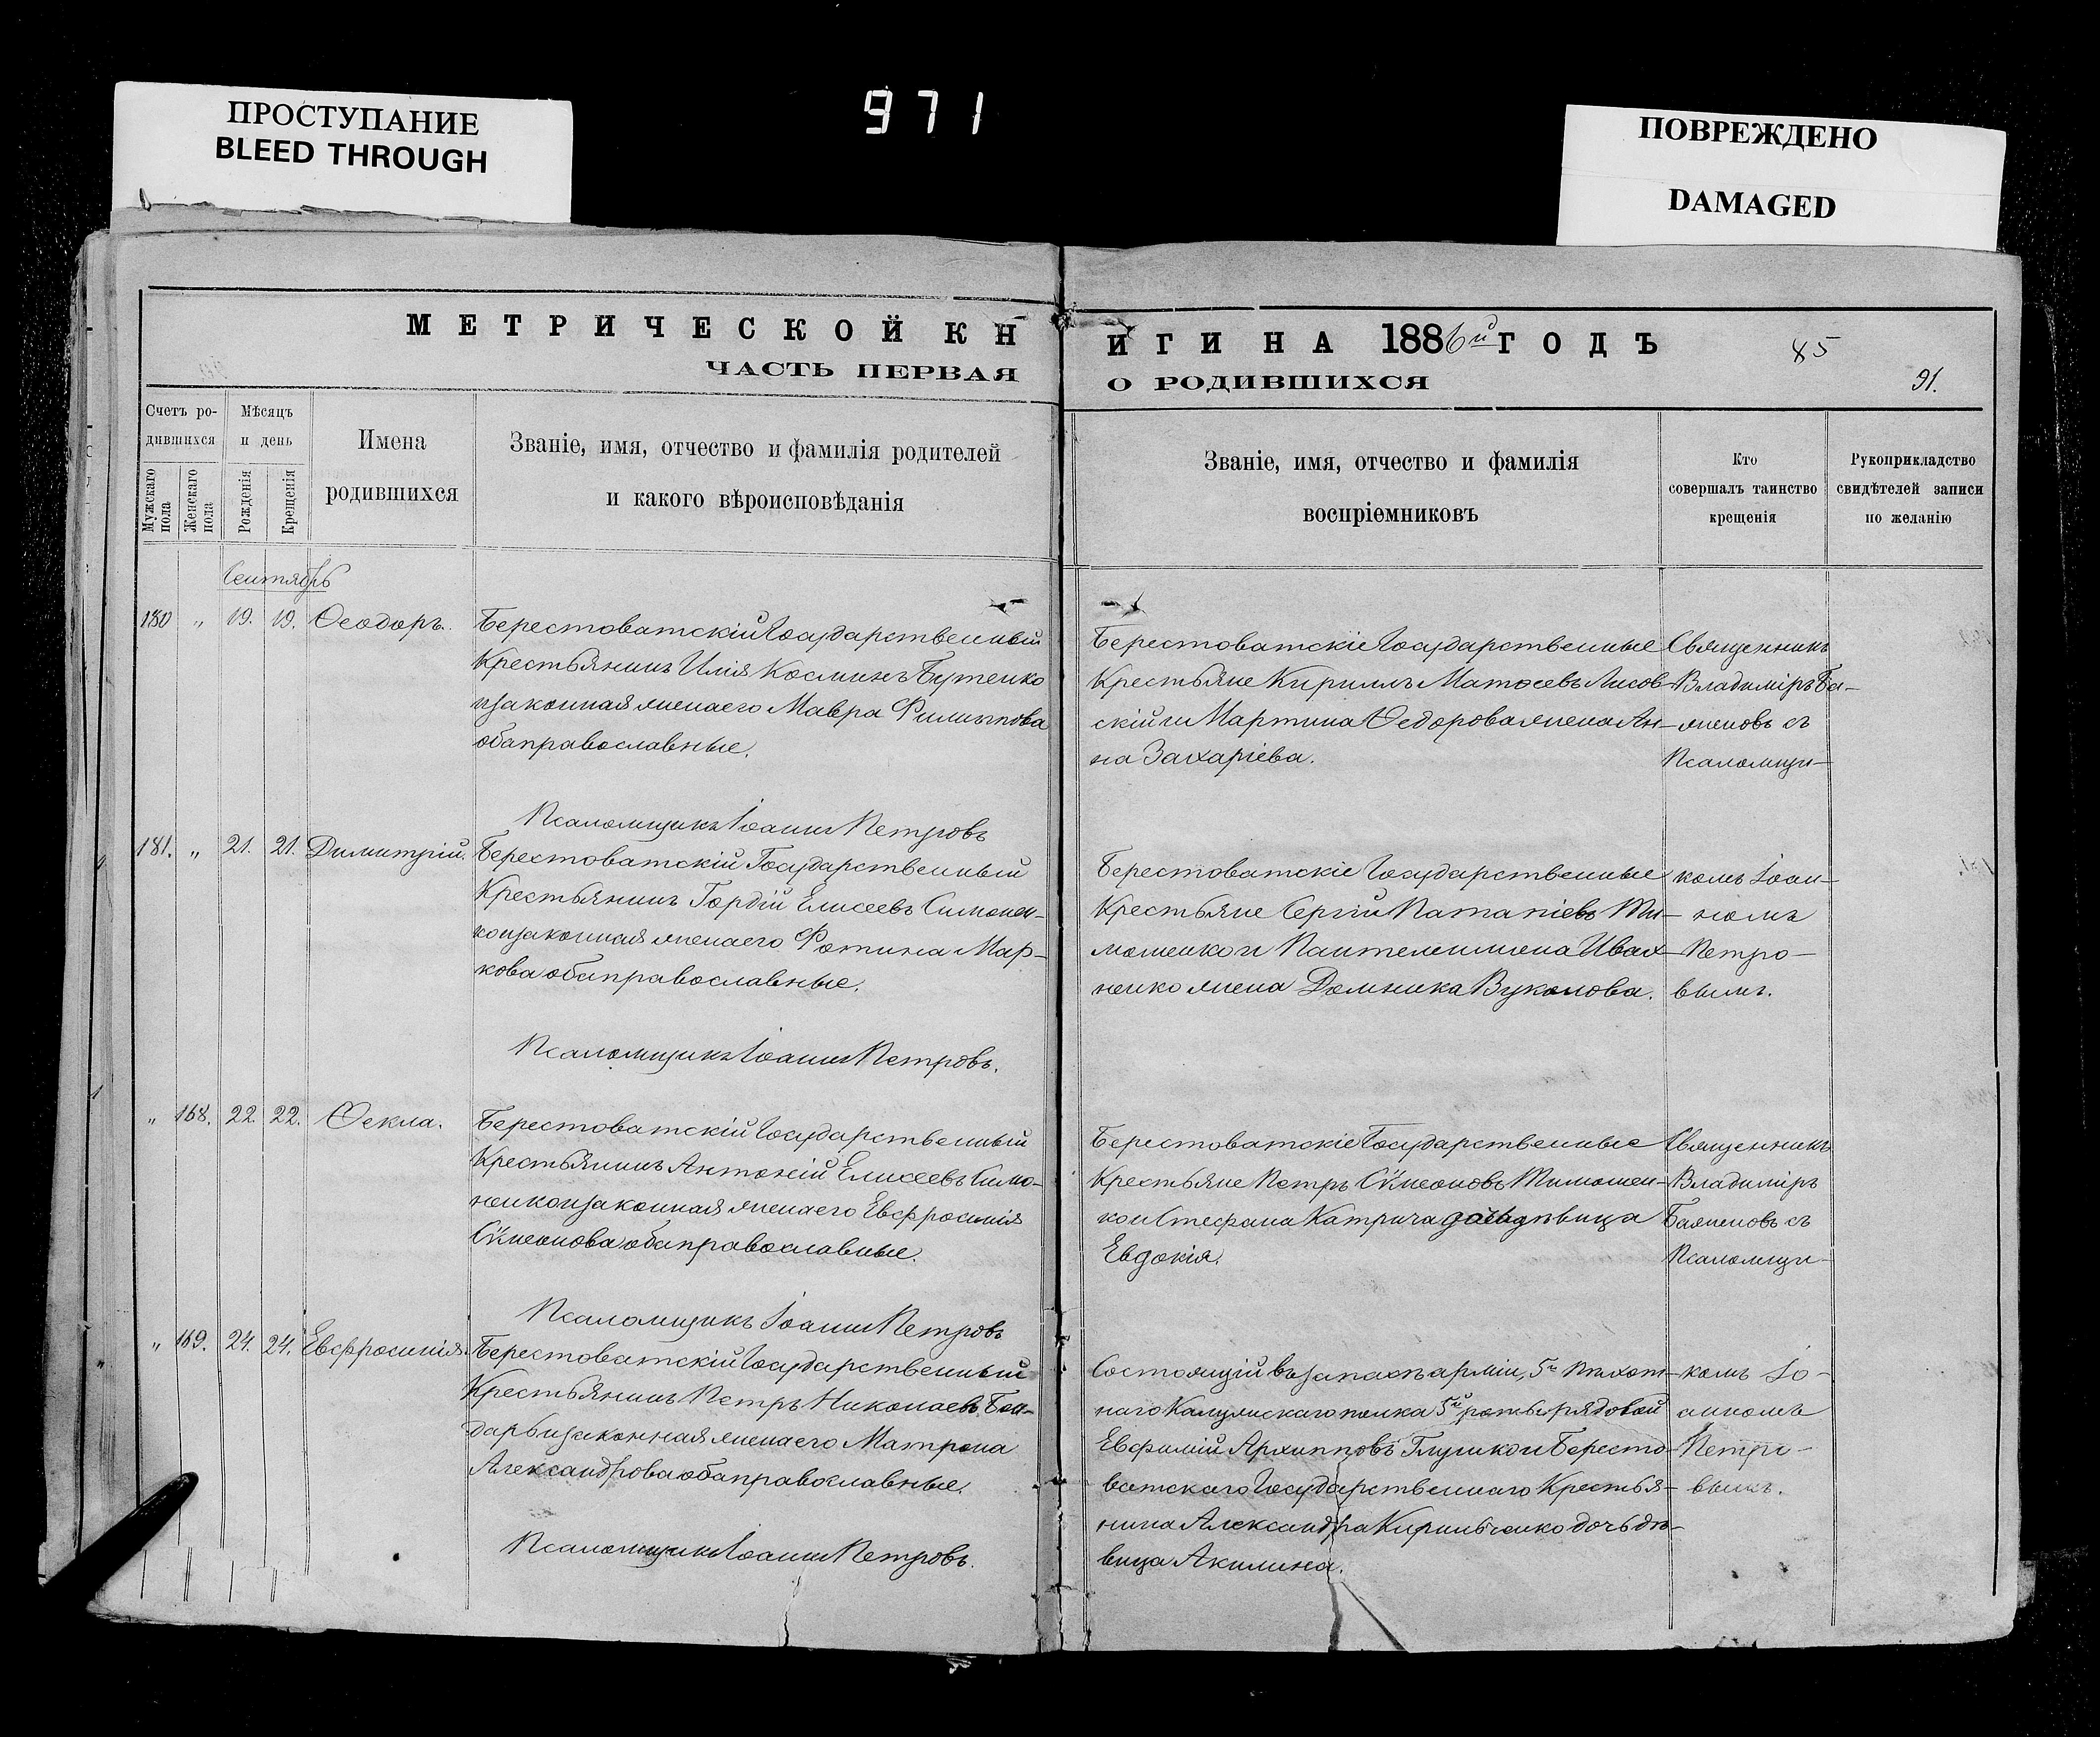 ПРОСТУПАНИЕ
BLEED THROUGH
971
ПОВРЕЖДЕНО
DAMAGED
МЕТРИЧЕСКОЙ КН
ИГИ НА 1886й ГОДЪ
85
ЧАСТЬ ПЕРВАЯ
О РОДИВШИХСЯ
91.
Счетъ ро-
дившихся
Мужскаго пола
Женскаго пола
Мѣсяцъ
и день
Рожденія
Крещенія
Имена
родившихся
Званіе, имя, отчество и фамилія родителей
и какого вѣроисповѣданія
Званіе, имя, отчество и фамилія
воспріемниковъ
Кто
совершалъ таинство
крещенія
Рукоприкладство
свидѣтелей записи
по желанію
Сентябрь
180 " 19. 19. Ѳеодоръ.
Берестоватскій Государственный
Крестьянинъ Илія Косминъ Бутенко
и законная жена его Мавра Филиппова
оба православные.
Псаломщикъ Іоаннъ Петровъ
Берестоватскіе Государственные
Крестьяне Кириллъ Матѳеевъ Лисов-
скій и Мартина Ѳедорова жена Ан-
на Захаріева.
Священникъ
Владиміръ Ба-
женовъ съ
Псаломщи-
181. " 21. 21. Димитрій.
Берестоватскій Государственный
Крестьянинъ Гордій Елисеевъ Симонен-
ко и законная жена его Фотина Мар-
кова оба православные.
Псаломщикъ Іоаннъ Петровъ.
Берестоватскіе Государственные
Крестьяне Сергій Патапіевъ Ти-
мошенко и Пантелеимона Ивах-
ненко жена Домника Вуколова.
комъ Іоан-
номъ
Петро-
вымъ.
" 168. 22. 22. Ѳекла.
Берестоватскій Государственный
Крестьянинъ Антоній Елисеевъ Симо-
ненко и законная жена его Евфросинія
Сѵмеонова оба православные.
Псаломщикъ Іоаннъ Петровъ
Берестоватскіе Государственные
Крестьяне Петръ Сѵмеоновъ Тимошен-
ко и Стефана Катрича дочь дѣвица
Евдокія.
Священникъ
Владиміръ
Баженовъ съ
Псаломщи-
" 169. 24. 24. Евфросинія.
Берестоватскій Государственный
Крестьянинъ Петръ Николаевъ Бон-
дарь и законная жена его Матрона
Александрова оба православные.
Псаломщикъ Іоаннъ Петровъ.
Состоящій въ запасѣ арміи, 5го Пѣхот-
наго Калужскаго полка 5й роты рядовой
Евфимій Архипповъ Глушко и Бересто-
ватскаго Государственнаго Крестья-
нина Александра Кириченко дочь дѣ-
вица Акилина.
комъ Іо-
анномъ
Петро-
вымъ.